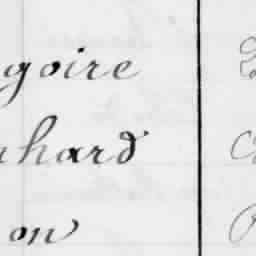 goire
hard
on